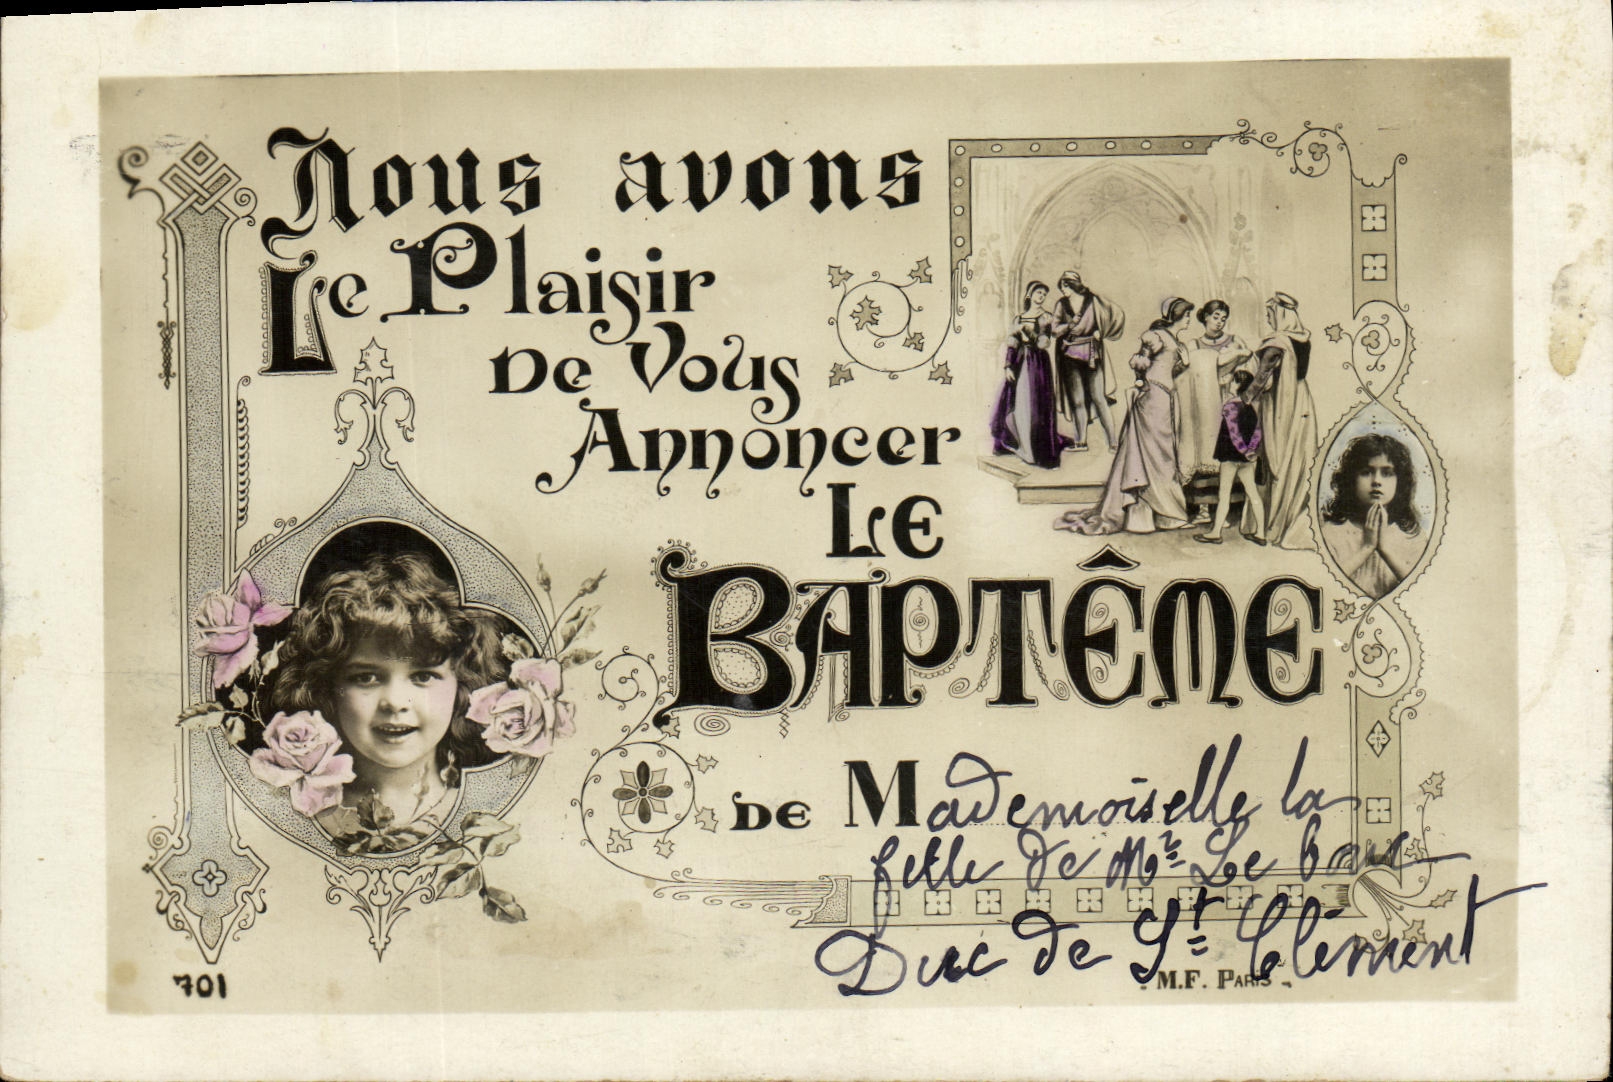 Nous avons
Le Plaisir
De Vous
Annoncer
LE
BAPTÊME
DE Mademoiselle la
fille de Mr Le
Duc de St Clément
701
M.F. PARIS